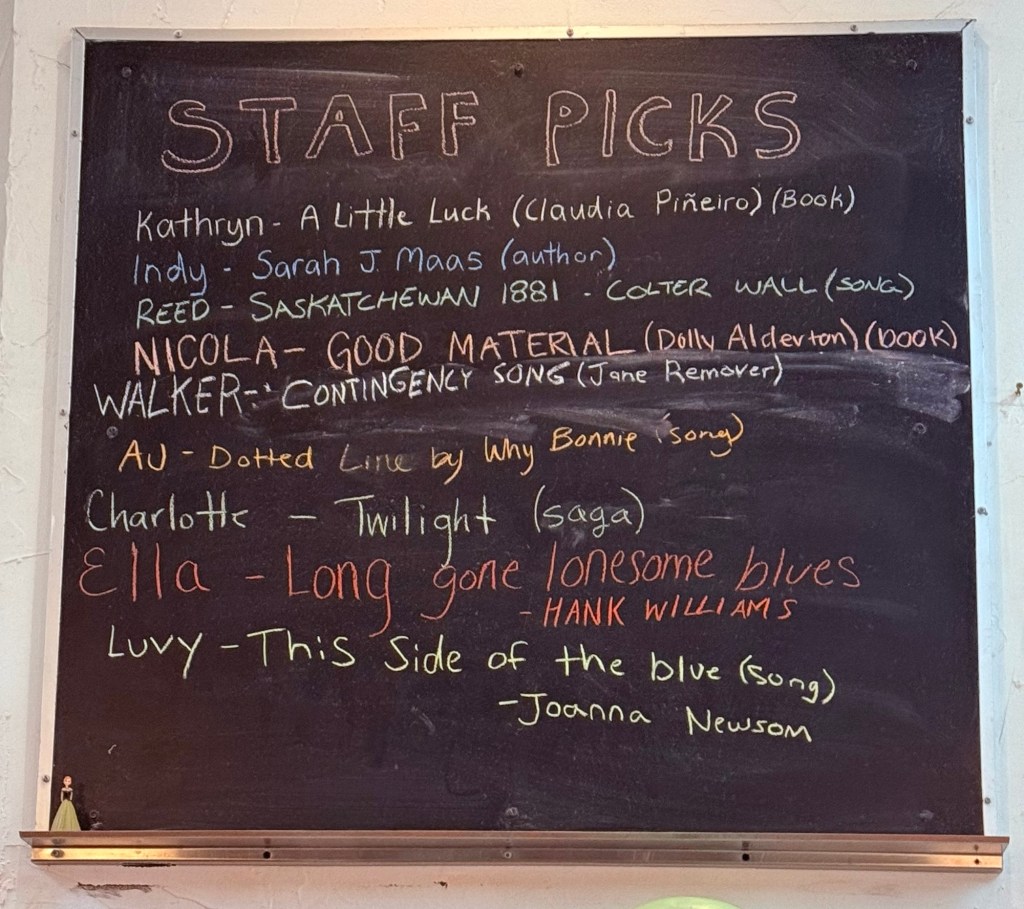 STAFF PICKS
Kathryn - A Little Luck (Claudia Piñeiro) (Book)
Indy - Sarah J. Maas (author)
REED - SASKATCHEWAN 1881 - COLTER WALL (SONG)
NICOLA - GOOD MATERIAL (Dolly Alderton) (book)
WALKER - CONTINGENCY SONG (Jane Remover)
AJ - Dotted Line by Why Bonnie (song)
Charlotte - Twilight (saga)
Ella - Long gone lonesome blues
- HANK WILLIAMS
Luvy - This Side of the blue (song)
- Joanna Newsom